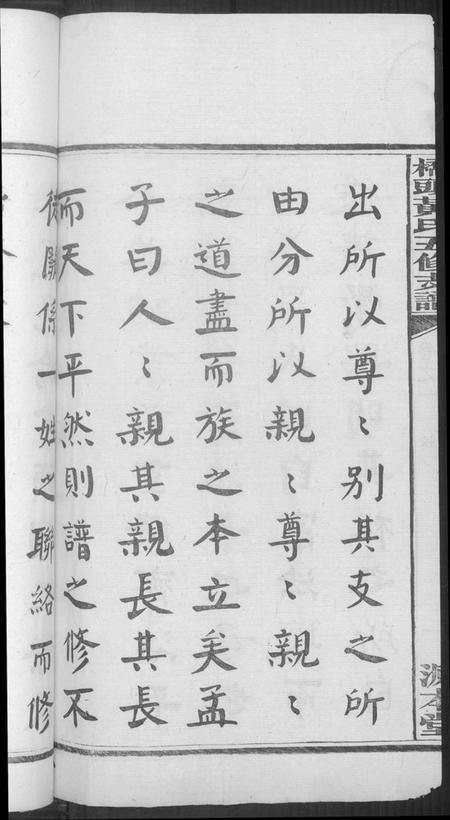 橋頭黃氏五修支譜
源本堂
出所以尊〻別其支之所
由分所以親〻尊〻親〻
之道盡而族之本立矣孟
子曰人〻親其親長其長
而天下平然則譜之修不
徒關係一姓之聯絡而修